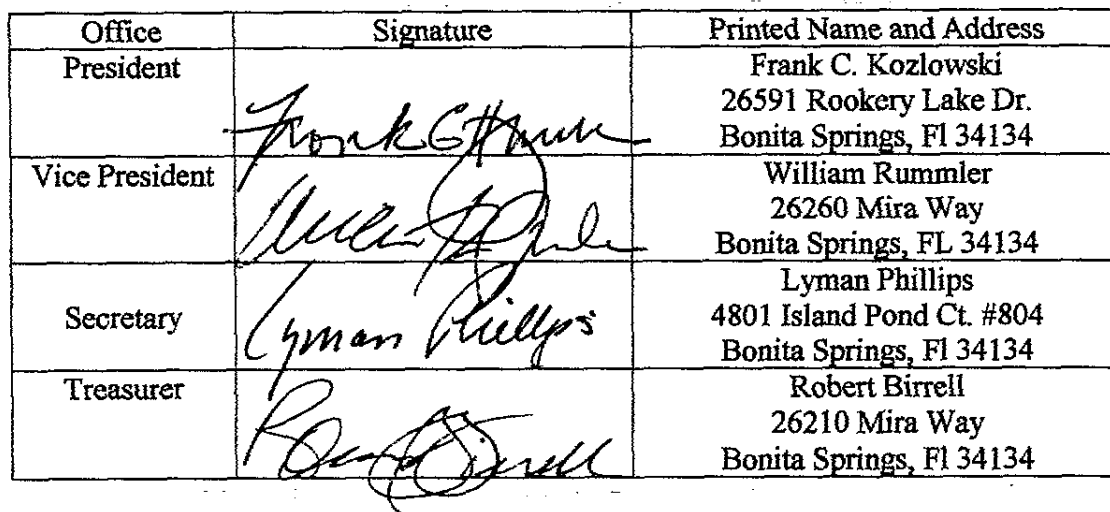 Office Signature Printed Name and Address
President Frank C. Kozlowski
26591 Rookery Lake Dr.
Frank
Bonita Springs, Fl 34134
Vice President William Rummler
26260 Mira Way
Bonita Springs, FL 34134
Lyman Phillips
Secretary Lyman Phillips 4801 Island Pond Ct. #804
Bonita Springs, Fl 34134
Treasurer Robert Birrell
26210 Mira Way
Bonita Springs, Fl 34134